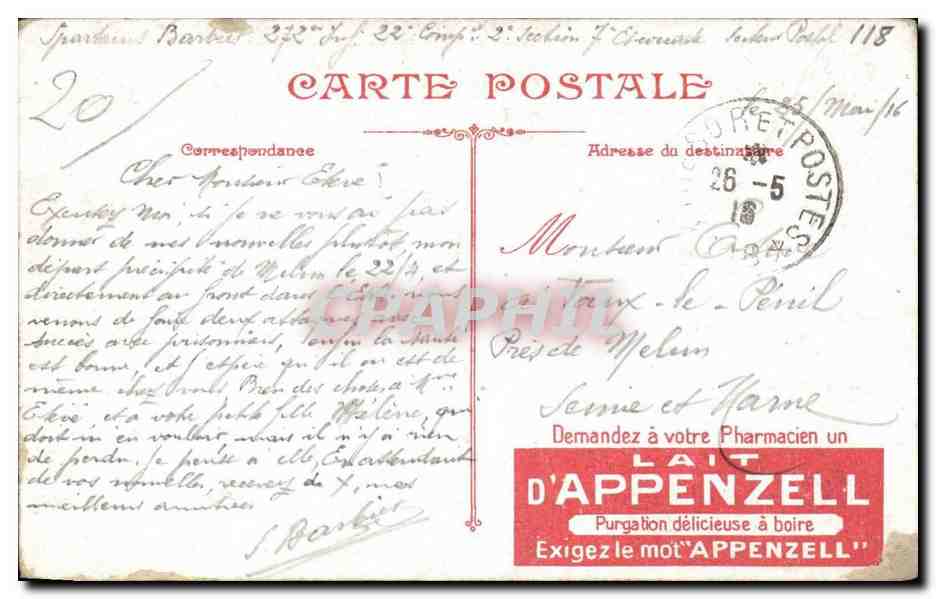 Spartacus Barbier 272me Inf. 22e Compie 2e Section 7e Escouade Secteur Postal 118
20/
CARTE POSTALE
le 25/Mai/16
Correspondance
Adresse du destinataire
TRESOR ET POSTES
26 -5
16
Cher Monsieur
Excusez moi, si je ne vous ai pas
donner de mes nouvelles plutôt, mon
départ précipité de Melun le 22/4, et
directement au front dans nous
venons de faire deux attaques avec
succès avec prisonniers, enfin la santé
est bonne, et j'espère qu'il en est de
même chez vous Bien des choses à Mme
et à votre petite fille Hélène, qui
doit m'en vouloir, mais il n'y a rien
de perdu, je pense à elle, En attendant
de vos nouvelles, recevez de X, mes
meilleurs amitiées
S. Barbier
Monsieur
à Vaux-le-Pénil
Près de Melun
Seine et Marne
CPAPHIL
Demandez à votre Pharmacien un
LAIT
D'APPENZELL
Purgation délicieuse à boire
Exigez le mot "APPENZELL"